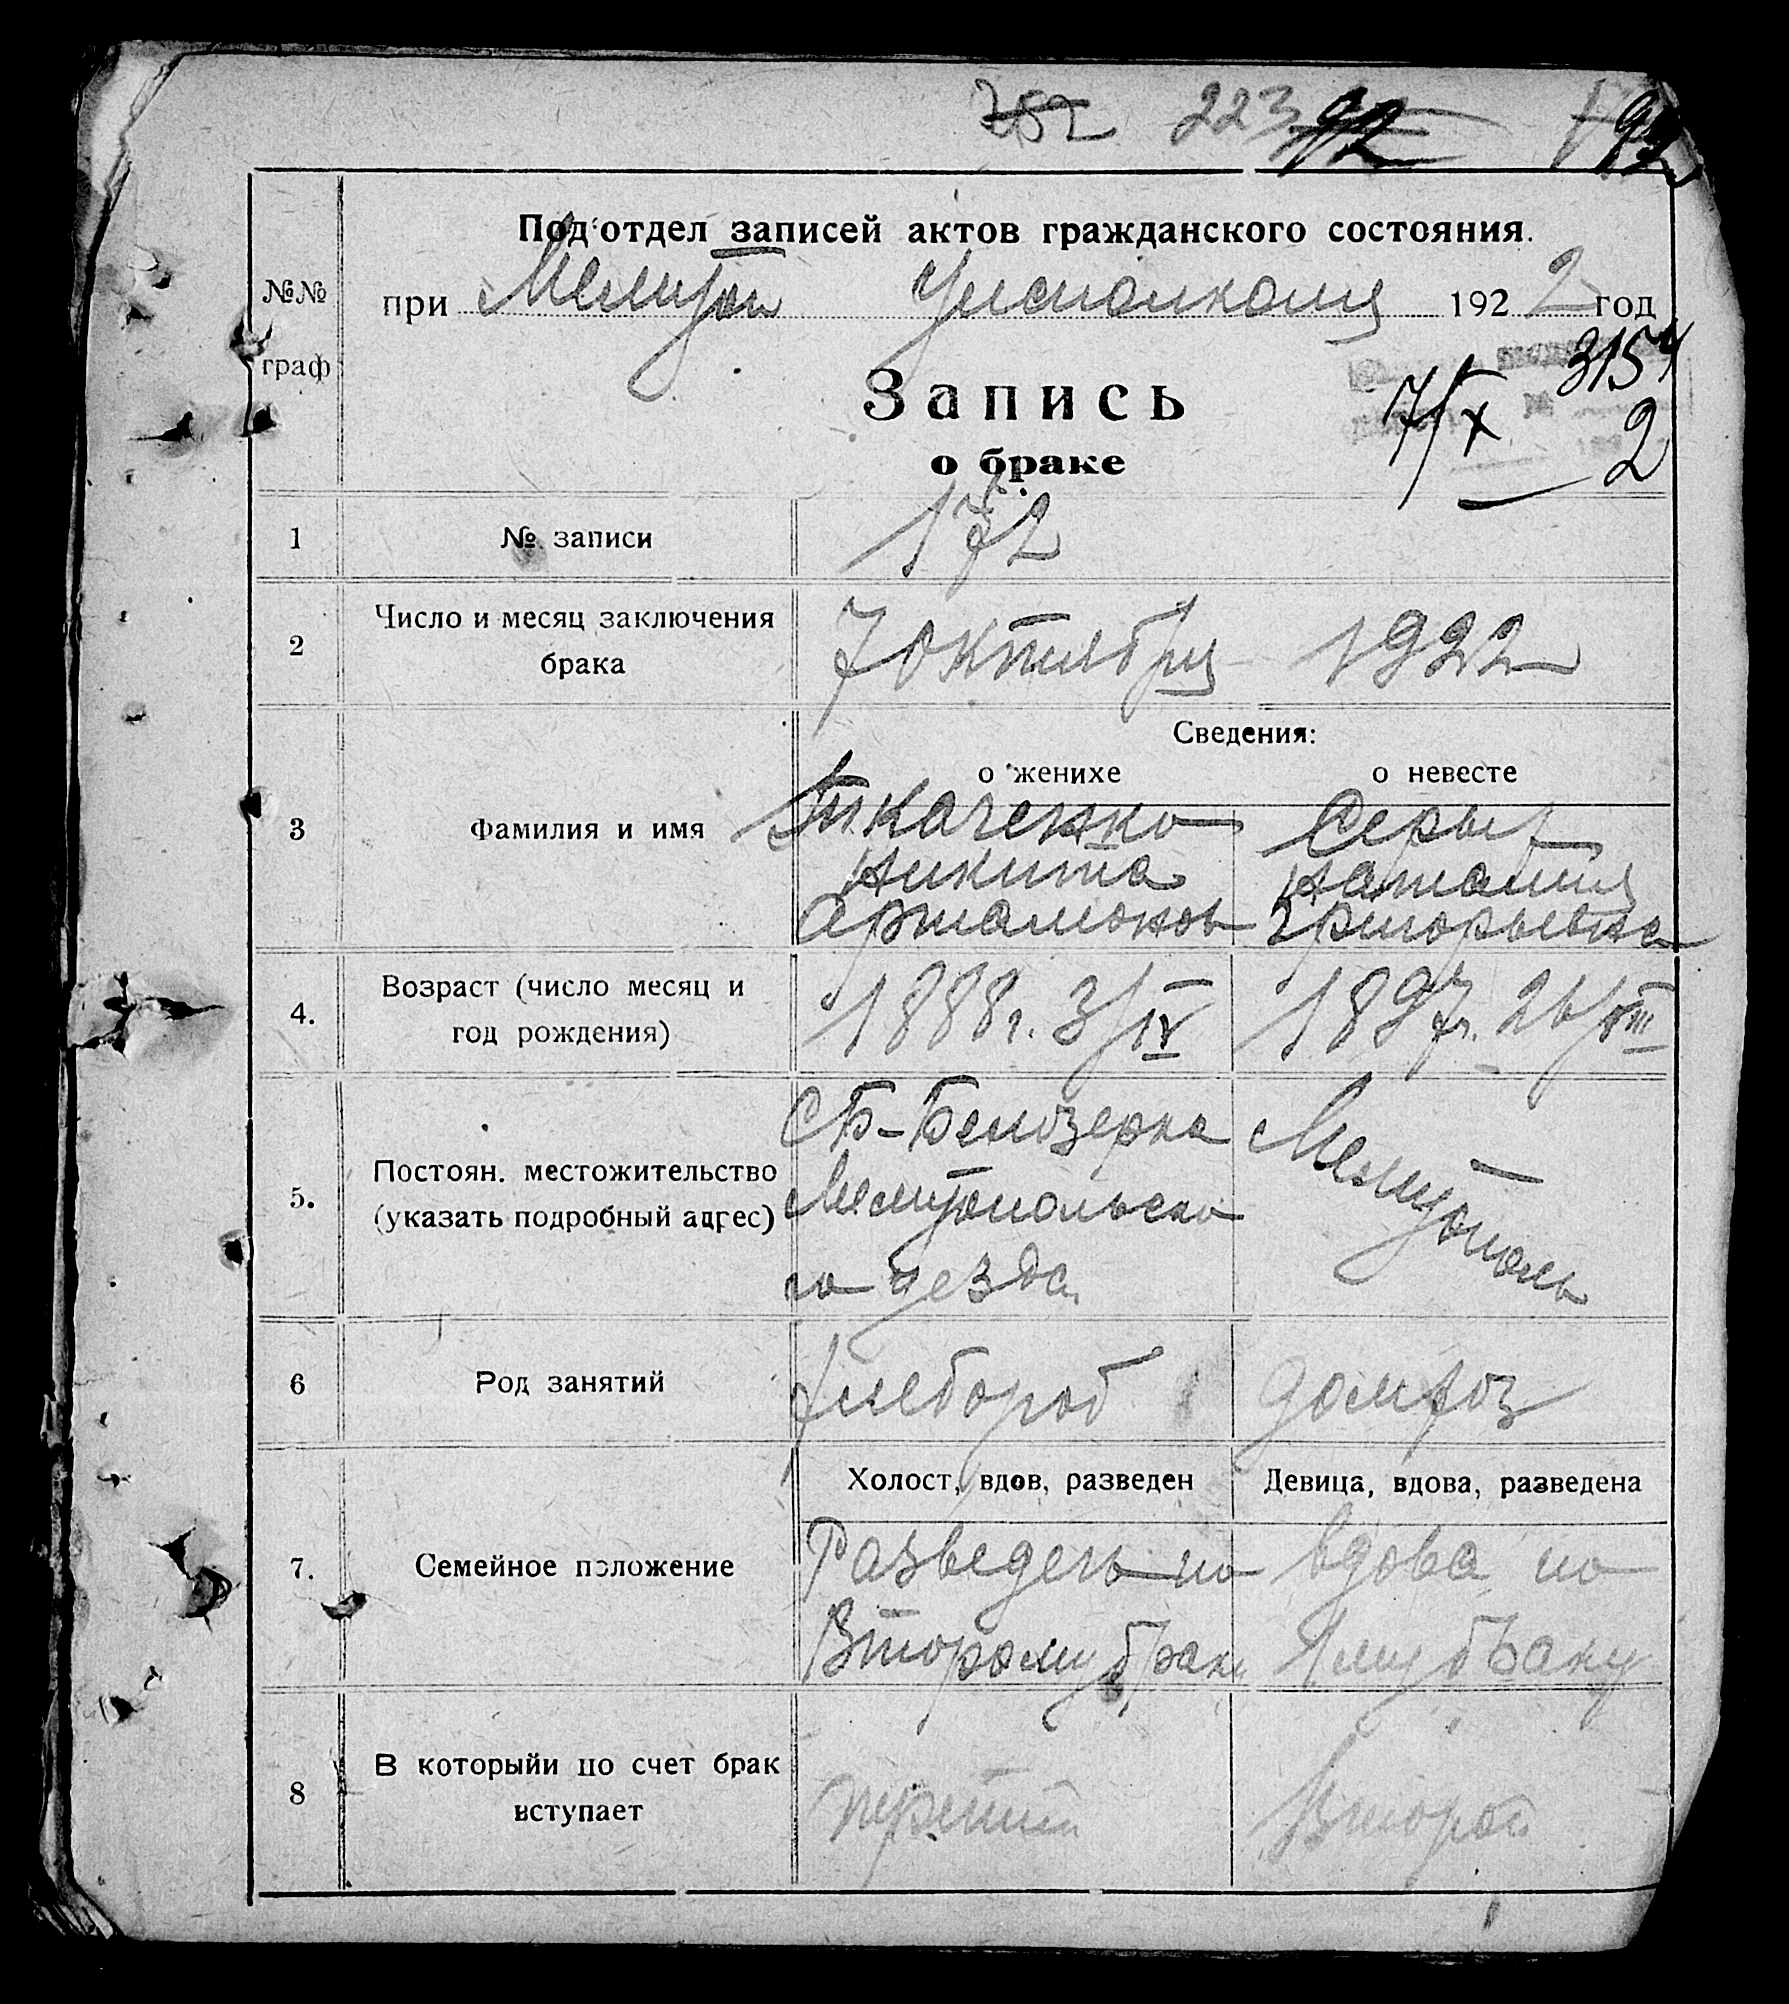 752 223 92 92
Под отдел записей актов гражданского состояния.
№№
при Мелитоп Уисполкома 1922 год
граф
3154
7/X 2
Запись
о браке
1 № записи 172
2 Число и месяц заключения 7 октября 1922
брака
Сведения:
о женихе о невесте
3 Фамилия и имя Ткаченко Серых
Никита Наталия
Артамонов Григорьевна
4. Возраст (число месяц и 1888 г. 3/IV 1897 г. 26/VIII
год рождения)
5. Постоян. местожительство С Б-Белозерка Мелитополь
(указать подробный адрес) Мелитопольско
го уезда
6 Род занятий хлебороб домхоз
Холост, вдов, разведен Девица, вдова, разведена
7. Семейное положение Разведен по вдова по
Второму браку 1му браку
8 В которыйи по счет брак третий Второй
вступает